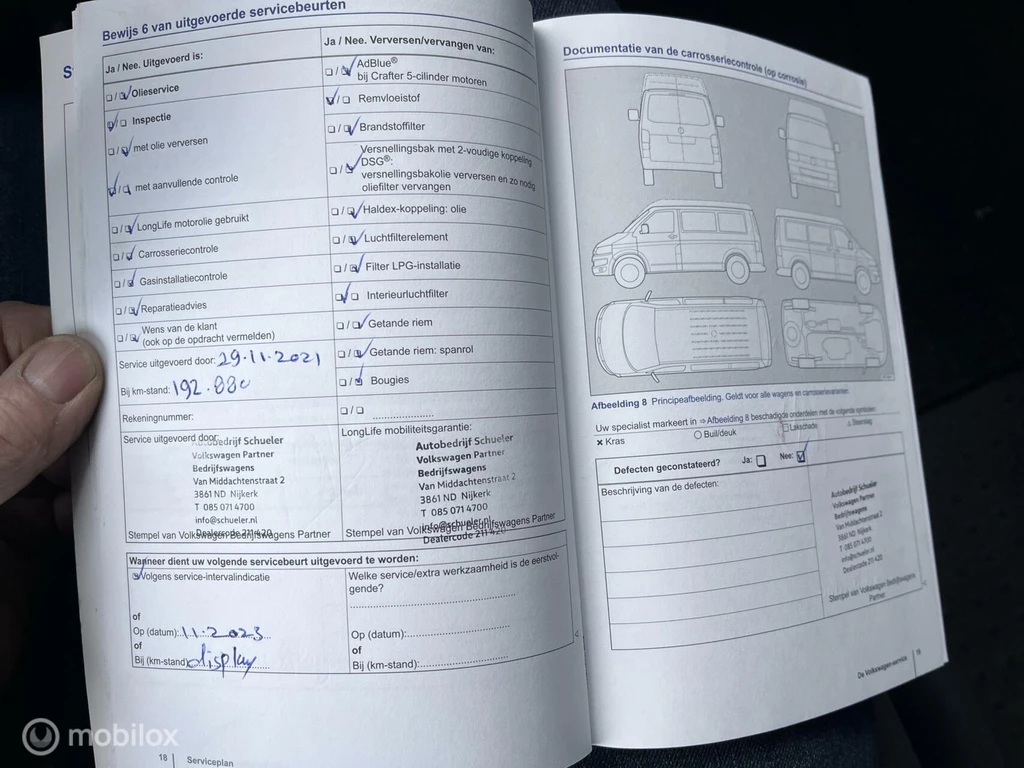 Bewijs 6 van uitgevoerde servicebeurten
Ja / Nee. Uitgevoerd is:
Olieservice
Inspectie
met olie verversen
met aanvullende controle
LongLife motorolie gebruikt
Carrosseriecontrole
Gasinstallatiecontrole
Reparatieadvies
Wens van de klant
(ook op de opdracht vermelden)
Service uitgevoerd door: 29.11.2021
Bij km-stand: 192.880
Rekeningnummer:
Service uitgevoerd door:
Autobedrijf Schueler
Volkswagen Partner
Bedrijfswagens
Van Middachtenstraat 2
3861 ND Nijkerk
T 085 071 4700
info@schueler.nl
Dealercode 211 420
Stempel van Volkswagen Bedrijfswagens Partner
Ja / Nee. Verversen/vervangen van:
AdBlue®
bij Crafter 5-cilinder motoren
Remvloeistof
Brandstoffilter
Versnellingsbak met 2-voudige koppeling
DSG®:
versnellingsbakolie verversen en zo nodig
oliefilter vervangen
Haldex-koppeling: olie
Luchtfilterelement
Filter LPG-installatie
Interieurluchtfilter
Getande riem
Getande riem: spanrol
Bougies
LongLife mobiliteitsgarantie:
Autobedrijf Schueler
Volkswagen Partner
Bedrijfswagens
Van Middachtenstraat 2
3861 ND Nijkerk
T 085 071 4700
info@schueler.nl
Stempel van Volkswagen Bedrijfswagens Partner
Dealercode 211 420
Wanneer dient uw volgende servicebeurt uitgevoerd te worden:
Volgens service-intervalindicatie
of
Op (datum): 11.2023
of
Bij (km-stand) display
Welke service/extra werkzaamheid is de eerstvol-
gende?
Op (datum):
of
Bij (km-stand):
18 | Serviceplan
Documentatie van de carrosseriecontrole (op corrosie)
Afbeelding 8 Principeafbeelding. Geldt voor alle wagens en carrosserievarianten.
Uw specialist markeert in ⇒ Afbeelding 8 beschadigde onderdelen met de volgende symbolen:
× Kras
Buil/deuk
Lakschade
Steenslag
Defecten geconstateerd? Ja: Nee:
Beschrijving van de defecten:
Autobedrijf Schueler
Volkswagen Partner
Bedrijfswagens
Van Middachtenstraat 2
3861 ND Nijkerk
T 085 071 4700
info@schueler.nl
Dealercode 211 420
Stempel van Volkswagen Bedrijfswagens
Partner
De Volkswagen-service
mobilox